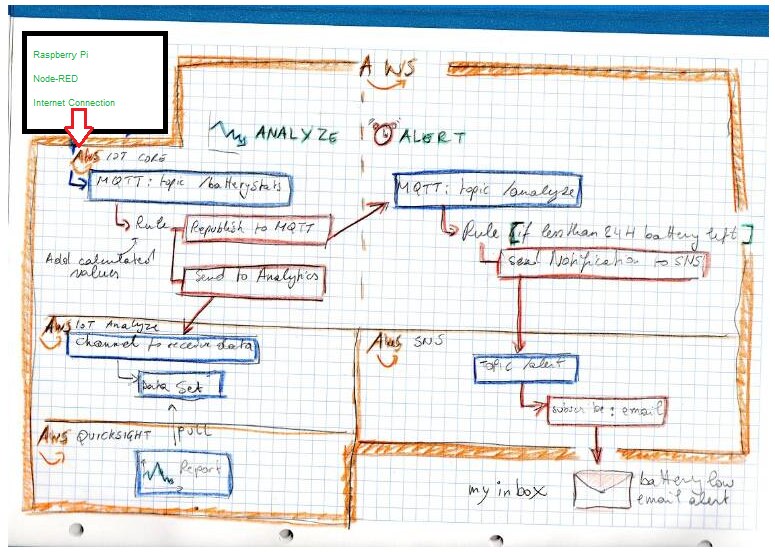 Raspberry Pi
Node-RED
Internet Connection
AWS
ANALYZE
ALERT
AWS IOT CORE
MQTT: topic /batteryStats
Rule
Republish to MQTT
Add calculated
values
Send to Analytics
MQTT: topic /analyze
Rule [if less than 24H battery left]
Send Notification to SNS
AWS IoT Analyze
Channel to receive data
Data Set
AWS SNS
topic /alert
subscribe: email
AWS QUICKSIGHT
PULL
Report
my inbox
battery low
email alert